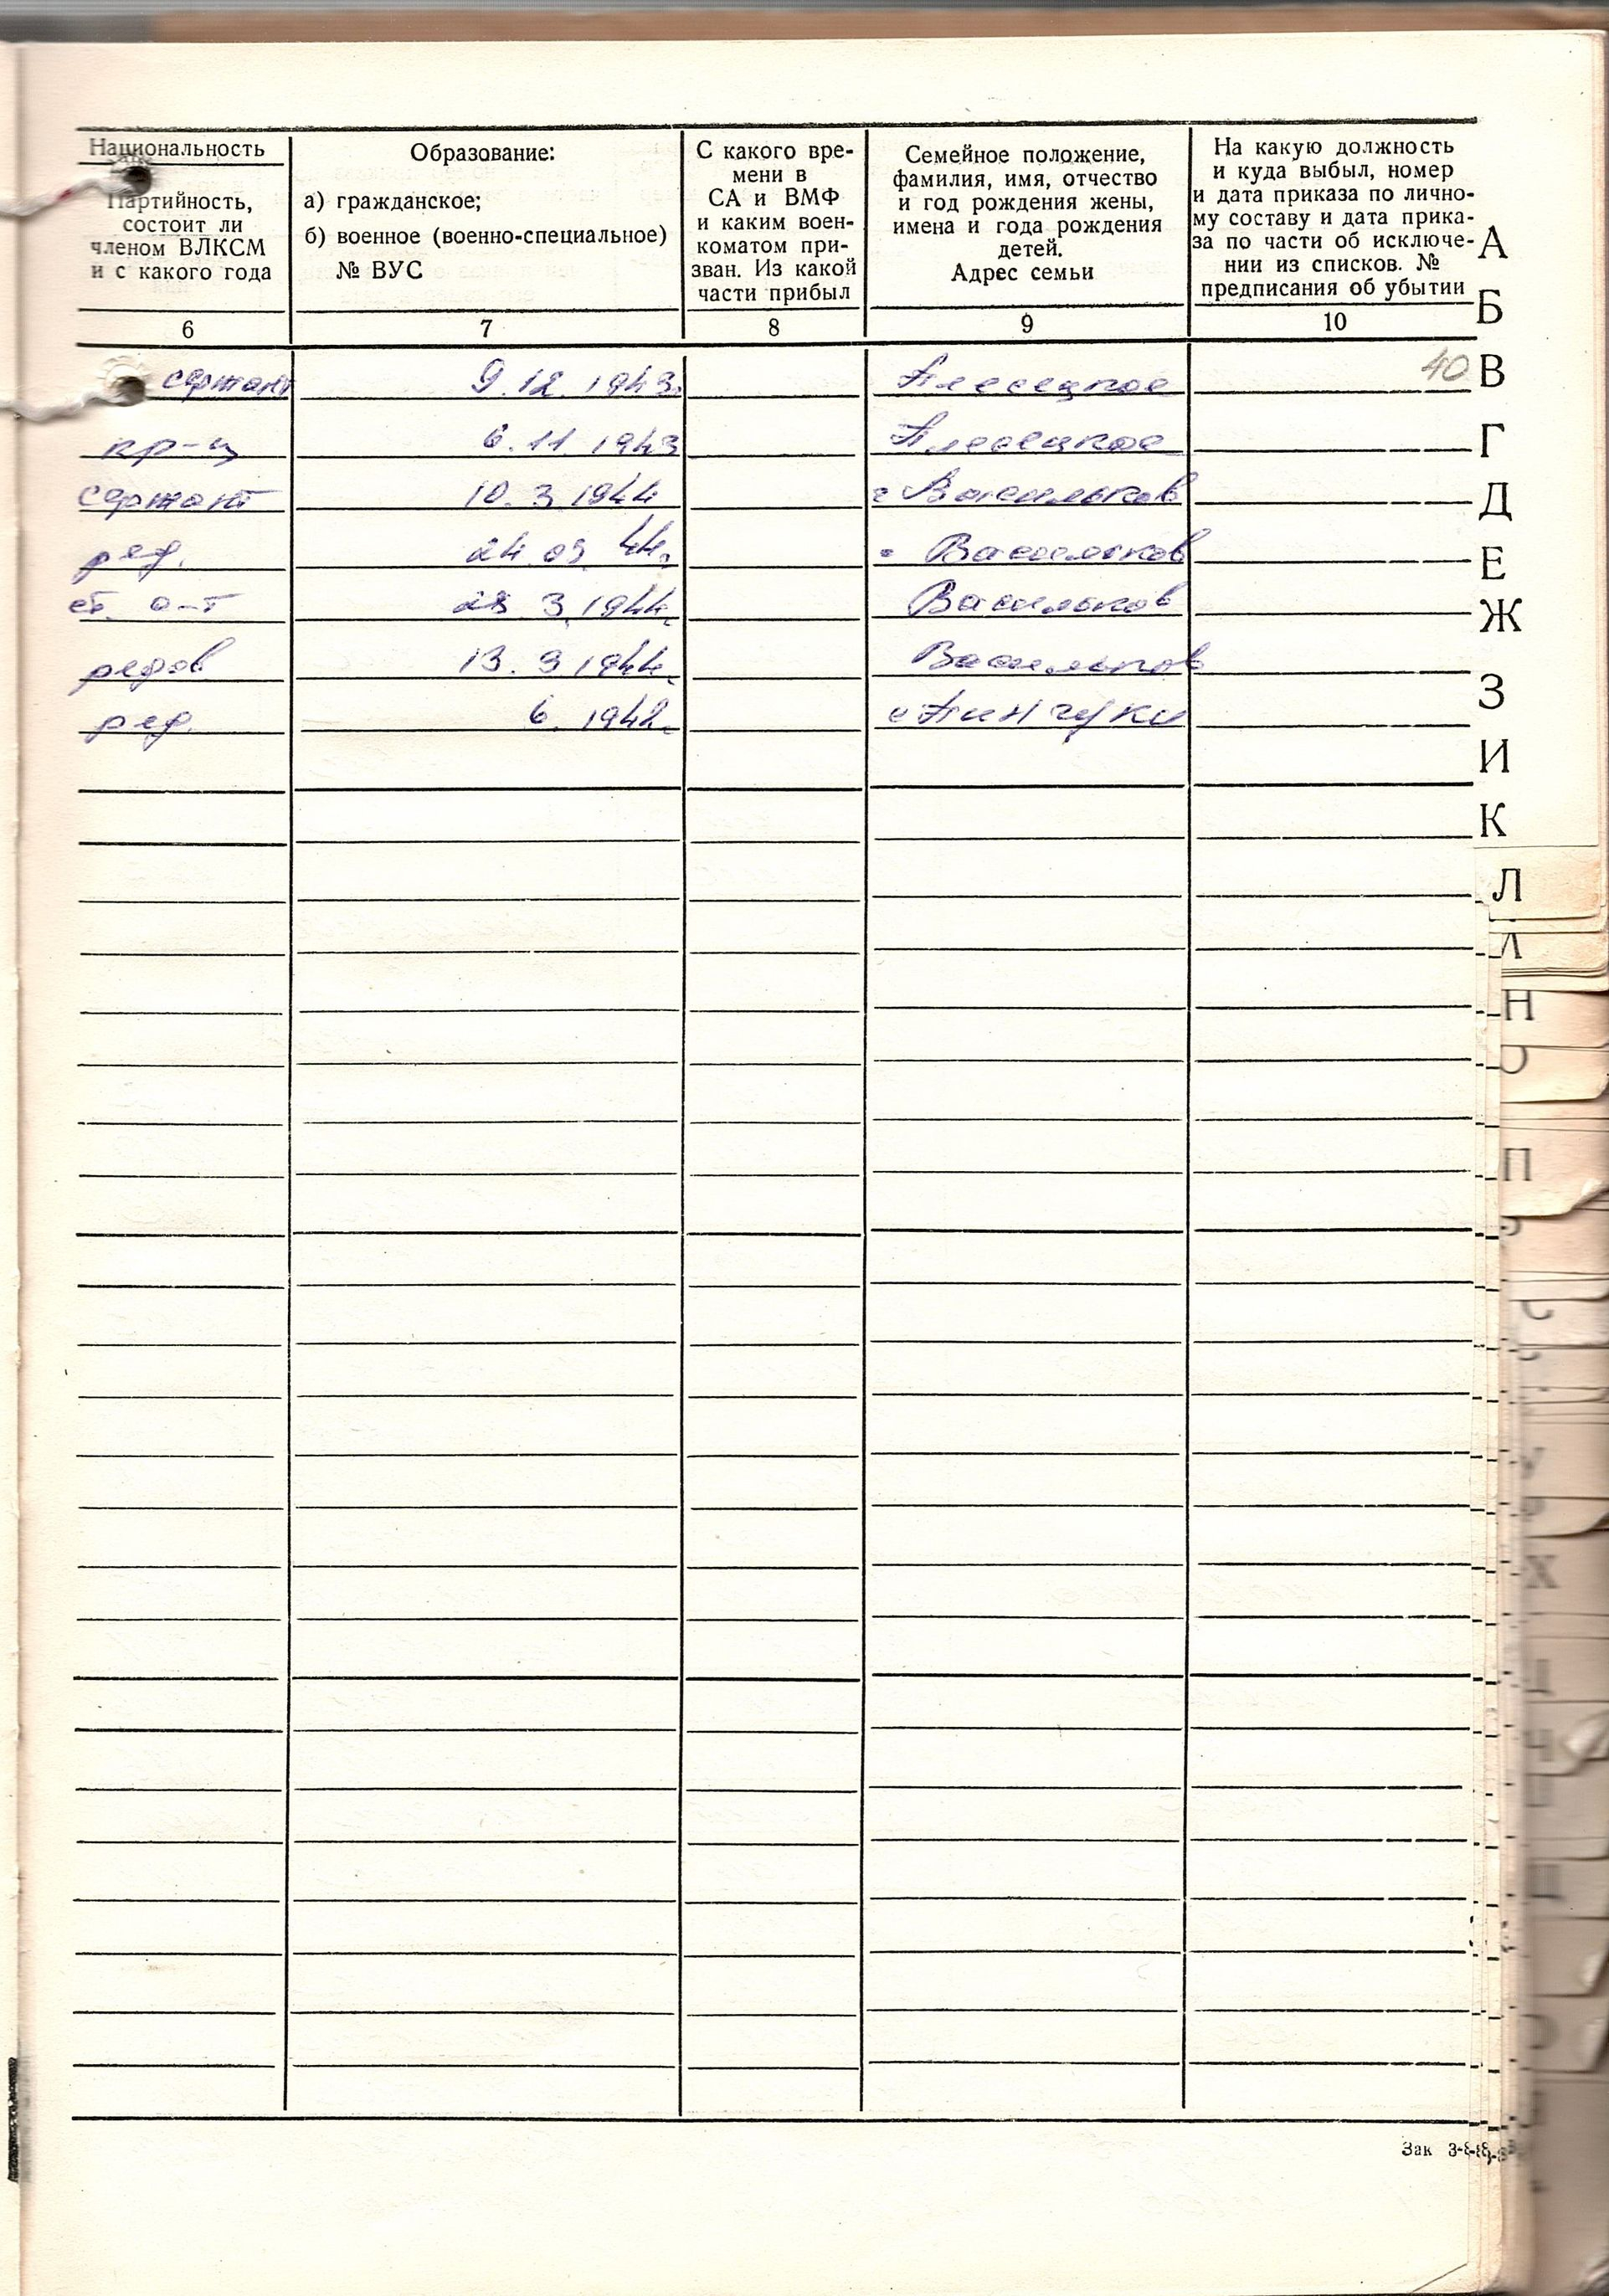 Национальность
Партийность,
состоит ли
членом ВЛКСМ
и с какого года
Образование:
а) гражданское;
б) военное (военно-специальное)
№ ВУС
С какого вре-
мени в
СА и ВМФ
и каким воен-
коматом при-
зван. Из какой
части прибыл
Семейное положение,
фамилия, имя, отчество
и год рождения жены,
имена и года рождения
детей.
Адрес семьи
На какую должность
и куда выбыл, номер
и дата приказа по лично-
му составу и дата прика-
за по части об исключе-
нии из списков. №
предписания об убытии
6 7 8 9 10
сержант 9.12.1943г Плесецкое 40
кр-ц 6.11.1943 Плесецкое
сержант 10.3.1944 г Васильков
ряд. 24.03.44г г Васильков
ст. с-т 28 3.1944г Васильков
рядов 13.3.1944г Васильков
ряд. 6.1942г с Пинчуки
А
Б
В
Г
Д
Е
Ж
З
И
К
Л
Н
О
П
С
У
Х
Ц
Ч
Щ
Зак